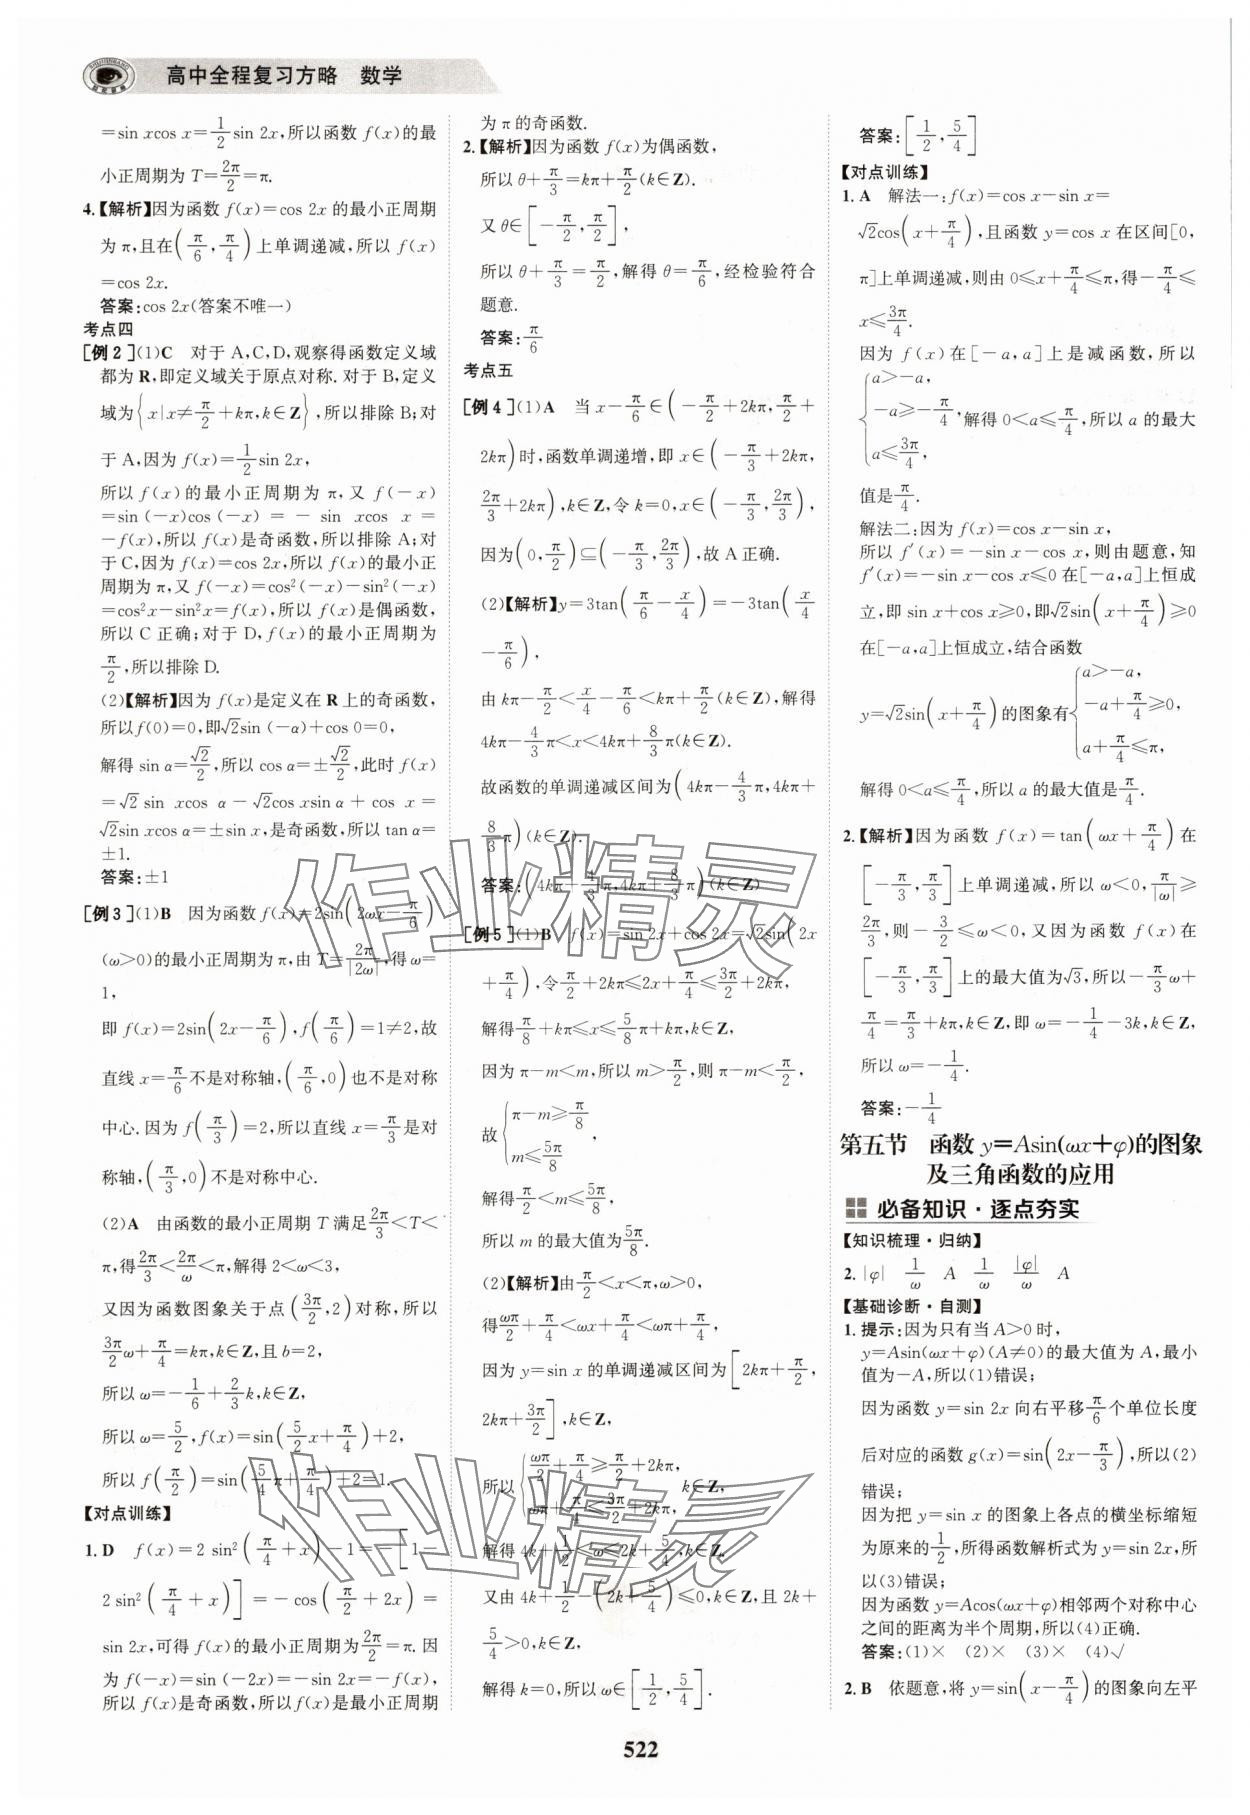 高中全程复习方略　数学
=sin xcos x=1/2 sin 2x,所以函数 f(x)的最
小正周期为 T=2π/2=π.
4.【解析】因为函数 f(x)=cos 2x 的最小正周期
为 π,且在(π/6,π/4)上单调递减,所以 f(x)
=cos 2x.
答案:cos 2x(答案不唯一)
考点四
[例2](1)C　对于 A,C,D,观察得函数定义域
都为 R,即定义域关于原点对称.对于 B,定义
域为{x|x≠π/2+kπ,k∈Z},所以排除 B;对
于 A,因为 f(x)=1/2 sin 2x,
所以 f(x)的最小正周期为 π,又 f(-x)
=sin (-x)cos (-x) = - sin xcos x =
-f(x),所以 f(x)是奇函数,所以排除 A;对
于 C,因为 f(x)=cos 2x,所以 f(x)的最小正
周期为 π,又 f(-x)=cos²(-x)-sin²(-x)
=cos²x-sin²x=f(x),所以 f(x)是偶函数,
所以 C 正确;对于 D,f(x)的最小正周期为
π/2,所以排除 D.
(2)【解析】因为 f(x)是定义在 R 上的奇函数,
所以f(0)=0,即√2sin (-α)+cos 0=0,
解得 sin α=√2/2,所以 cos α=±√2/2,此时 f(x)
=√2 sin xcos α-√2cos xsin α+cos x=
√2sin xcos α=±sin x,是奇函数,所以 tan α=
±1.
答案:±1
[例3](1)B　因为函数 f(x)=2sin(2ωx-π/6)
(ω>0)的最小正周期为 π,由 T=2π/|2ω|,得 ω=
1,
即 f(x)=2sin(2x-π/6),f(π/6)=1≠2,故
直线 x=π/6不是对称轴,(π/6,0)也不是对称
中心.因为 f(π/3)=2,所以直线 x=π/3是对
称轴,(π/3,0)不是对称中心.
(2)A　由函数的最小正周期 T 满足2π/3<T<
π,得2π/3<2π/ω<π,解得 2<ω<3,
又因为函数图象关于点(3π/2,2)对称,所以
3π/2 ω+π/4=kπ,k∈Z,且 b=2,
所以 ω=-1/6+2/3 k,k∈Z,
所以 ω=5/2,f(x)=sin(5/2 x+π/4)+2,
所以 f(π/2)=sin(5/4 π+π/4)+2=1.
【对点训练】
1.D　f(x)=2 sin²(π/4+x)-1=-[1-
2 sin²(π/4+x)]=-cos(π/2+2x)=
sin 2x,可得 f(x)的最小正周期为2π/2=π.因
为 f(-x)=sin (-2x)=-sin 2x=-f(x),
所以 f(x)是奇函数,所以 f(x)是最小正周期
为 π的奇函数.
2.【解析】因为函数 f(x)为偶函数,
所以 θ+π/3=kπ+π/2(k∈Z).
又 θ∈[-π/2,π/2],
所以 θ+π/3=π/2,解得 θ=π/6,经检验符合
题意.
答案:π/6
考点五
[例4](1)A　当 x-π/6∈(-π/2+2kπ,π/2+
2kπ)时,函数单调递增,即 x∈(-π/3+2kπ,
2π/3+2kπ),k∈Z,令 k=0,x∈(-π/3,2π/3),
因为(0,π/2)⊆(-π/3,2π/3),故 A 正确.
(2)【解析】y=3tan(π/6-x/4)=-3tan(x/4
-π/6),
由 kπ-π/2<x/4-π/6<kπ+π/2(k∈Z),解得
4kπ-4/3 π<x<4kπ+8/3 π(k∈Z).
故函数的单调递减区间为(4kπ-4/3 π,4kπ+
8/3 π)(k∈Z).
答案:(4kπ-4/3 π,4kπ+8/3 π)(k∈Z)
[例5](1)B　f(x)=sin 2x+cos 2x=√2sin(2x
+π/4),令π/2+2kπ≤2x+π/4≤3π/2+2kπ,
解得π/8+kπ≤x≤5/8 π+kπ,k∈Z,
因为 π-m<m,所以 m>π/2,则 π-m<π/2,
故{π-m≥π/8
m≤5π/8,
解得π/2<m≤5π/8,
所以 m 的最大值为5π/8.
(2)【解析】由π/2<x<π,ω>0,
得ωπ/2+π/4<ωx+π/4<ωπ+π/4,
因为 y=sin x 的单调递减区间为[2kπ+π/2,
2kπ+3π/2],k∈Z,
所以{ωπ/2+π/4≥π/2+2kπ
ωπ+π/4≤3π/2+2kπ,　k∈Z,
解得 4k+1/2≤ω≤2k+5/4,k∈Z,
又由 4k+1/2-(2k+5/4)≤0,k∈Z,且 2k+
5/4>0,k∈Z,
解得 k=0,所以 ω∈[1/2,5/4].
答案:[1/2,5/4]
【对点训练】
1.A　解法一:f(x)=cos x-sin x=
√2cos(x+π/4),且函数 y=cos x 在区间[0,
π]上单调递减,则由 0≤x+π/4≤π,得-π/4≤
x≤3π/4.
因为 f(x)在[-a,a]上是减函数,所以
{a>-a,
-a≥-π/4,解得 0<a≤π/4,所以 a 的最大
a≤3π/4,
值是π/4.
解法二:因为 f(x)=cos x-sin x,
所以 f′(x)=-sin x-cos x,则由题意,知
f′(x)=-sin x-cos x≤0 在[-a,a]上恒成
立,即 sin x+cos x≥0,即√2sin(x+π/4)≥0
在[-a,a]上恒成立,结合函数
y=√2sin(x+π/4)的图象有{a>-a,
-a+π/4≥0,
a+π/4≤π,
解得 0<a≤π/4,所以 a 的最大值是π/4.
2.【解析】因为函数 f(x)=tan(ωx+π/4)在
[-π/3,π/3]上单调递减,所以 ω<0,π/|ω|≥
2π/3,则-3/2≤ω<0,又因为函数 f(x)在
[-π/3,π/3]上的最大值为√3,所以-π/3 ω+
π/4=π/3+kπ,k∈Z,即 ω=-1/4-3k,k∈Z,
所以 ω=-1/4.
答案:-1/4
第五节　函数 y=Asin(ωx+φ)的图象
及三角函数的应用
必备知识·逐点夯实
【知识梳理·归纳】
2.|φ|　1/ω　A　1/ω　|φ|/ω　A
【基础诊断·自测】
1.提示:因为只有当 A>0 时,
y=Asin(ωx+φ)(A≠0)的最大值为 A,最小
值为-A,所以(1)错误;
因为函数 y=sin 2x 向右平移π/6个单位长度
后对应的函数 g(x)=sin(2x-π/3),所以(2)
错误;
因为把 y=sin x 的图象上各点的横坐标缩短
为原来的1/2,所得函数解析式为 y=sin 2x,所
以(3)错误;
因为函数 y=Acos(ωx+φ)相邻两个对称中心
之间的距离为半个周期,所以(4)正确.
答案:(1)×　(2)×　(3)×　(4)√
2.B　依题意,将 y=sin(x-π/4)的图象向左平
522
作业精灵
作业精灵